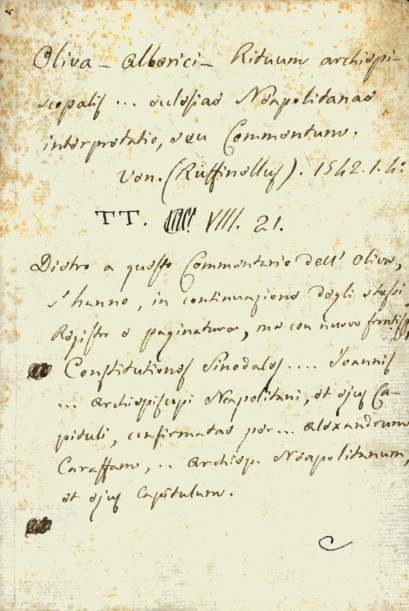 Oliva - Alberici - Rituum archiepi-
scopalis ... ecclesiae Neapolitanae
interpretatio, seu Commentum.
Ven. (Ruffinellus). 1542. 1. 4°
TT. VIII. 21.
Dietro a questo Commentario dell' Oliva,
s' hanno, in continuazione degli stessi
Registro e paginatura, ma con nuovo frontisp.
Constitutiones Sinodales .... Joannis
... Archiepiscopi Neapolitani, et ejus Ca-
pituli, confirmatae per ... Alexandrum
Caraffam, .. Archiep. Neapolitanum,
et ejus Capitulum.